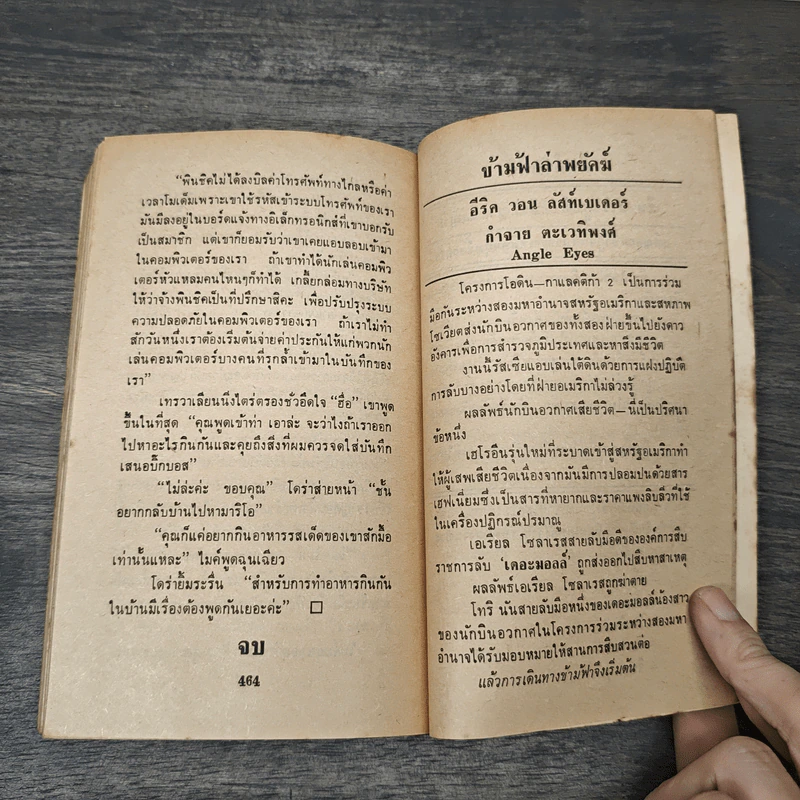 “พินชิคไม่ได้ลงบิลค่าโทรศัพท์ทางไกลหรือค่า
เวลาโมเด็มเพราะเขาใช้รหัสเข้าระบบโทรศัพท์ของเรา
มันมีลงอยู่ในบอร์ดแจ้งทางอิเล็กทรอนิกส์ที่เขาบอกรับ
เป็นสมาชิก แต่เขาก็ยอมรับว่าเขาเคยแอบลอบเข้ามา
ในคอมพิวเตอร์ของเรา ถ้าเขาทำได้นักเล่นคอมพิว
เตอร์หัวแหลมคนไหนๆก็ทำได้ เกลี้ยกล่อมทางบริษัท
ให้ว่าจ้างพินชิคเป็นที่ปรึกษาสิคะ เพื่อปรับปรุงระบบ
ความปลอดภัยในคอมพิวเตอร์ของเรา ถ้าเราไม่ทำ
สักวันหนึ่งเราต้องเริ่มต้นจ่ายค่าประกันให้แก่พวกนัก
เล่นคอมพิวเตอร์บางคนที่รุกล้ำเข้ามาในบันทึกของ
เรา”
เทรวาเลียนนึ่งไตร่ตรองชั่วอึดใจ “ฮื่อ” เขาพูด
ขึ้นในที่สุด “คุณพูดเข้าท่า เอาล่ะ จะว่าไงถ้าเราออก
ไปหาอะไรกินกันและคุยถึงสิ่งที่ผมควรจดใส่บันทึก
เสนอบิ๊กบอส”
“ไม่ล่ะค่ะ ขอบคุณ” โดร่าส่ายหน้า “ชั้น
อยากกลับบ้านไปหามาริโอ”
“คุณก็แค่อยากกินอาหารรสเด็ดของเขาสักมื้อ
เท่านั้นแหละ” ไมค์พูดฉุนเฉียว
โดร่ายิ้มระรื่น “สำหรับการทำอาหารกินกัน
ในบ้านมีเรื่องต้องพูดกันเยอะค่ะ” □
จบ
464
ข้ามฟ้าล่าพยัคฆ์
อีริค วอน ลัสท์เบเดอร์
กำจาย ตะเวทิพงศ์
Angle Eyes
โครงการโอดิน—กาแลคติก้า 2 เป็นการร่วม
มือกันระหว่างสองมหาอำนาจสหรัฐอเมริกาและสหภาพ
โซเวียตส่งนักบินอวกาศของทั้งสองฝ่ายขึ้นไปยังดาว
อังคารเพื่อการสำรวจภูมิประเทศและหาสิ่งมีชีวิต
งานนี้รัสเซียแอบเล่นใต้ดินด้วยการแฝงปฏิบัติ
การลับบางอย่างโดยที่ฝ่ายอเมริกาไม่ล่วงรู้
ผลลัพธ์นักบินอวกาศเสียชีวิต—นี่เป็นปริศนา
ข้อหนึ่ง
เฮโรอีนรุ่นใหม่ที่ระบาดเข้าสู่สหรัฐอเมริกาทำ
ให้ผู้เสพเสียชีวิตเนื่องจากมันมีการปลอมปนด้วยสาร
เฮฟเนี่ยมซึ่งเป็นสารที่หายากและราคาแพงลิบลิ่วที่ใช้
ในเครื่องปฏิกรณ์ปรมาณู
เอเรียล โซลาเรสสายลับมือดีขององค์การสืบ
ราชการลับ ‘เดอะมอลล์’ ถูกส่งออกไปสืบหาสาเหตุ
ผลลัพธ์เอเรียล โซลาเรสถูกฆ่าตาย
โทรี นันสายลับมือหนึ่งของเดอะมอลล์น้องสาว
ของนักบินอวกาศในโครงการร่วมระหว่างสองมหา
อำนาจได้รับมอบหมายให้สานการสืบสวนต่อ
แล้วการเดินทางข้ามฟ้าจึงเริ่มต้น